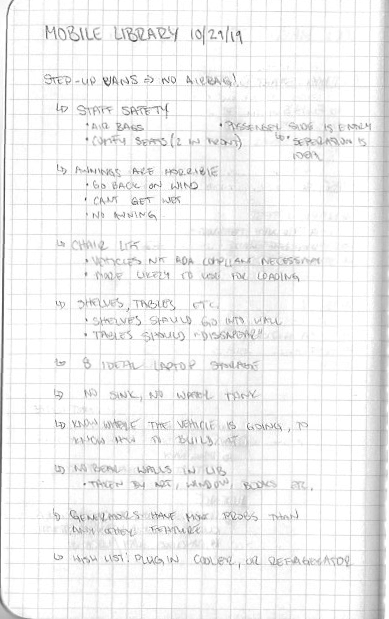 MOBILE LIBRARY 10/29/19
STEP-UP VANS => NO AIRBAG!
↳ STAFF SAFETY
• AIR BAGS
• COMFY SEATS (2 IN FRONT)
• PASSENGER SIDE IS ENTRY
↳ • SEPARATION IS IDEAL
↳ AWNINGS ARE HORRIBLE
• GO BACK ON WIND
• CAN'T GET WET
• NO AWNING
↳ CHAIR LIFT
• VEHICLES NOT ADA COMPLIANT NECESSARY
• MORE LIKELY TO USE FOR LOADING
↳ SHELVES, TABLES ETC.
• SHELVES SHOULD GO INTO WALL
• TABLES SHOULD "DISSAPEAR"
↳ 8 IDEAL LAPTOP STORAGE
↳ NO SINK, NO WATER TANK
↳ KNOW WHERE THE VEHICLE IS GOING, TO
KNOW HOW TO BUILD IT
↳ NO REAL WALLS IN LIB
• TAKEN BY ART, WINDOW, BOOKS ETC.
↳ GENERATORS HAVE MORE PROBS THAN
ANY OTHER FEATURE
↳ WISH LIST: PLUG IN COOLER, OR REFRIGERATOR